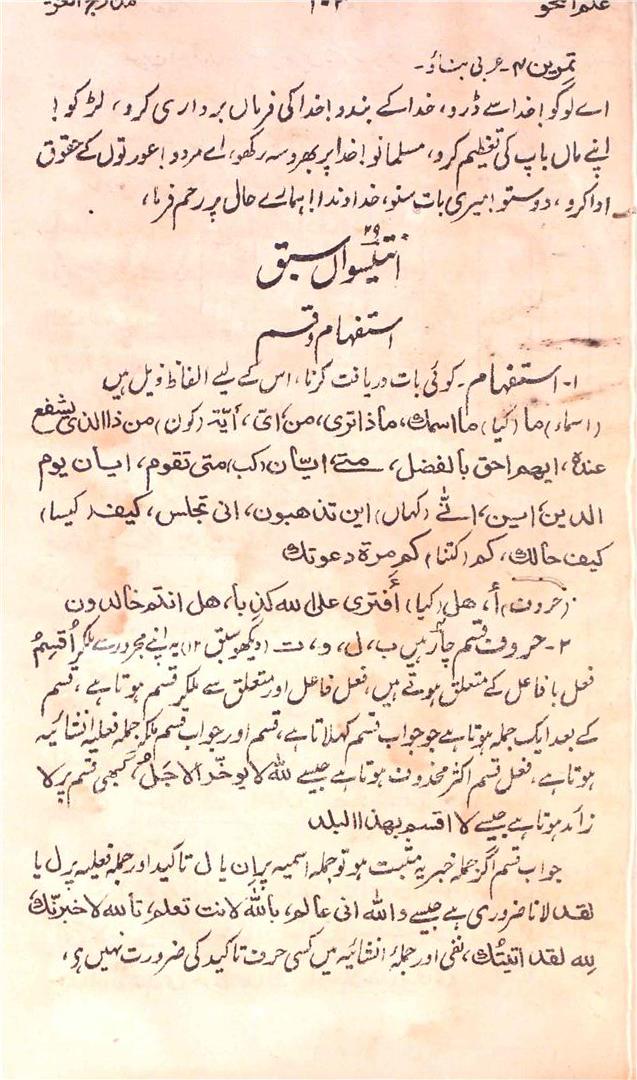 علم النحو ۱۰۲
تمرین ۴- عربی بناؤ-
اے لوگو! خدا سے ڈرو، خدا کے بندو! خدا کی فرماں برداری کرو، لڑکو!
اپنے ماں باپ کی تعظیم کرو، مسلمانو! خدا پر بھروسہ رکھو، اے مردو! عورتوں کے حقوق
ادا کرو، دوستو! میری بات سنو، خداوندا! ہمارے حال پر رحم فرما،
۲۹
انتیسواں سبق
استفہام و قسم
۱- استفہام- کوئی بات دریافت کرنا، اس کے لیے الفاظ ذیل ہیں
(اسماء) ما (کیا) ما اسمك، ماذا ترى، من، ائ، أية (کون) من ذا الذی یشفع
عنده، ایهم احق بالفضل، متے، ایان (کب) متی تقوم، ایان یوم
الدین، این، انے (کہاں) این تذهبون، انی تجلس، کیف (کیسا)
کیف حالك، کم (کتنا) کم مرة دعوتك
(حروف) أ، هل (کیا) أَفترى على الله كذبا، هل انتم خالدون
۲- حروف قسم چار ہیں ب، ل، و، ت (دیکھو سبق ۱۲) یہ اپنے مجرور سے ملکر اُقسِمُ
فعل با فاعل کے متعلق ہوتے ہیں، فعل فاعل اور متعلق سے ملکر قسم ہوتا ہے، قسم
کے بعد ایک جملہ ہوتا ہے جو جواب قسم کہلاتا ہے، قسم اور جواب قسم ملکر جملہ فعلیہ انشائیہ
ہوتا ہے، فعل قسم اکثر محذوف ہوتا ہے جیسے لله لا یوخّر الاجلُ، کبھی قسم پر لا
زائد ہوتا ہے جیسے لا اقسم بهذا البلد
جواب قسم اگر جملہ خبریہ مثبت ہو تو جملہ اسمیہ پر اِن یا ل تاکید اور جملہ فعلیہ پر ل یا
لقد لانا ضروری ہے جیسے والله انی عالم، بالله لانت تعلم، تالله لاخبرنك
لله لقد اتیتُك، نفی اور جملۂ انشائیہ میں کسی حرف تاکید کی ضرورت نہیں ہے،